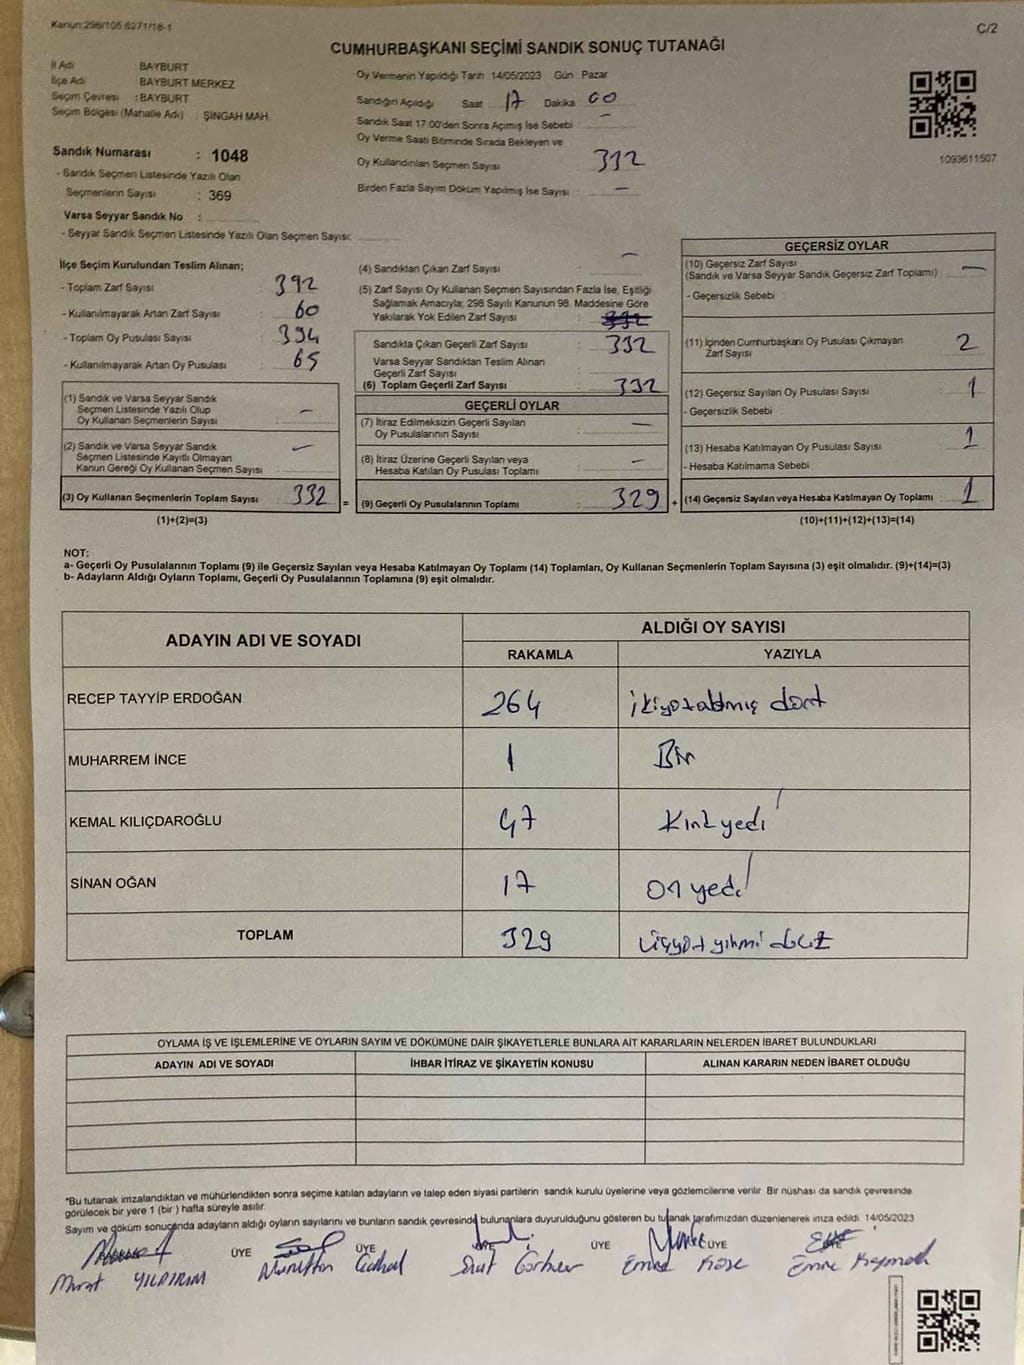 Kanun:298/105,6271/16-1
C/2
CUMHURBAŞKANI SEÇİMİ SANDIK SONUÇ TUTANAĞI
İl Adı : BAYBURT
İlçe Adı : BAYBURT MERKEZ
Seçim Çevresi : BAYBURT
Seçim Bölgesi (Mahalle Adı) : ŞİNGAH MAH.
Sandık Numarası : 1048
- Sandık Seçmen Listesinde Yazılı Olan
Seçmenlerin Sayısı : 369
Varsa Seyyar Sandık No :
- Seyyar Sandık Seçmen Listesinde Yazılı Olan Seçmen Sayısı:
Oy Vermenin Yapıldığı Tarih : 14/05/2023 Gün : Pazar
Sandığın Açıldığı Saat 17 Dakika 00
Sandık Saat 17.00'den Sonra Açımış İse Sebebi : —
Oy Verme Saati Bitiminde Sırada Bekleyen ve
Oy Kullandırılan Seçmen Sayısı 332
Birden Fazla Sayım Döküm Yapılmış İse Sayısı : —
1093611507
İlçe Seçim Kurulundan Teslim Alınan;
- Toplam Zarf Sayısı : 392
- Kullanılmayarak Artan Zarf Sayısı : 60
- Toplam Oy Pusulası Sayısı : 394
- Kullanılmayarak Artan Oy Pusulası : 65
(1) Sandık ve Varsa Seyyar Sandık
Seçmen Listesinde Yazılı Olup
Oy Kullanan Seçmenlerin Sayısı : —
(2) Sandık ve Varsa Seyyar Sandık
Seçmen Listesinde Kayıtlı Olmayan
Kanun Gereği Oy Kullanan Seçmen Sayısı : —
(3) Oy Kullanan Seçmenlerin Toplam Sayısı : 332
(1)+(2)=(3)
(4) Sandıktan Çıkan Zarf Sayısı : —
(5) Zarf Sayısı Oy Kullanan Seçmen Sayısından Fazla İse, Eşitliği
Sağlamak Amacıyla; 298 Sayılı Kanunun 98. Maddesine Göre
Yakılarak Yok Edilen Zarf Sayısı : 332
Sandıkta Çıkan Geçerli Zarf Sayısı : 332
Varsa Seyyar Sandıktan Teslim Alınan
Geçerli Zarf Sayısı :
(6) Toplam Geçerli Zarf Sayısı : 332
GEÇERLİ OYLAR
(7) İtiraz Edilmeksizin Geçerli Sayılan
Oy Pusulalarının Sayısı : —
(8) İtiraz Üzerine Geçerli Sayılan veya
Hesaba Katılan Oy Pusulası Toplamı : —
= (9) Geçerli Oy Pusulalarının Toplamı : 329 +
GEÇERSİZ OYLAR
(10) Geçersiz Zarf Sayısı
(Sandık ve Varsa Seyyar Sandık Geçersiz Zarf Toplamı) : —
- Geçersizlik Sebebi :
(11) İçinden Cumhurbaşkanı Oy Pusulası Çıkmayan
Zarf Sayısı : 2
(12) Geçersiz Sayılan Oy Pusulası Sayısı : 1
- Geçersizlik Sebebi :
(13) Hesaba Katılmayan Oy Pusulası Sayısı : 1
- Hesaba Katılmama Sebebi :
(14) Geçersiz Sayılan veya Hesaba Katılmayan Oy Toplamı : 1
(10)+(11)+(12)+(13)=(14)
NOT:
a- Geçerli Oy Pusulalarının Toplamı (9) ile Geçersiz Sayılan veya Hesaba Katılmayan Oy Toplamı (14) Toplamları, Oy Kullanan Seçmenlerin Toplam Sayısına (3) eşit olmalıdır. (9)+(14)=(3)
b- Adayların Aldığı Oyların Toplamı, Geçerli Oy Pusulalarının Toplamına (9) eşit olmalıdır.
ADAYIN ADI VE SOYADI
ALDIĞI OY SAYISI
RAKAMLA YAZIYLA
RECEP TAYYİP ERDOĞAN 264 ikiyüzaltmış dört
MUHARREM İNCE 1 Bir
KEMAL KILIÇDAROĞLU 47 Kırkyedi
SİNAN OĞAN 17 On yedi
TOPLAM 329 üçyüz yirmi dokuz
OYLAMA İŞ VE İŞLEMLERİNE VE OYLARIN SAYIM VE DÖKÜMÜNE DAİR ŞİKAYETLERLE BUNLARA AİT KARARLARIN NELERDEN İBARET BULUNDUKLARI
ADAYIN ADI VE SOYADI İHBAR İTİRAZ VE ŞİKAYETİN KONUSU ALINAN KARARIN NEDEN İBARET OLDUĞU
*Bu tutanak imzalandıktan ve mühürlendikten sonra seçime katılan adayların ve talep eden siyasi partilerin sandık kurulu üyelerine veya gözlemcilerine verilir. Bir nüshası da sandık çevresinde
görülecek bir yere 1 (bir ) hafta süreyle asılır.
Sayım ve döküm sonucunda adayların aldığı oyların sayılarını ve bunların sandık çevresinde bulunanlara duyurulduğunu gösteren bu tutanak tarafımızdan düzenlenerek imza edildi. 14/05/2023
ÜYE ÜYE ÜYE ÜYE
Murat YILDIRIM Nurettin Suat Emre Köse Emre Kaymak